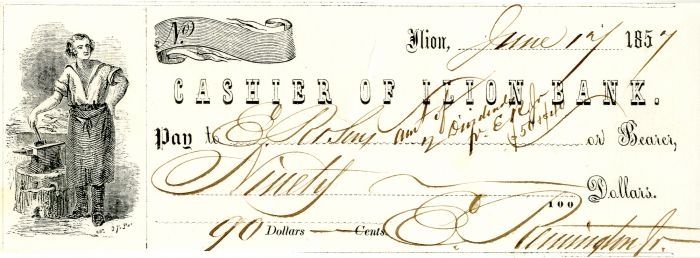 No.
Ilion, June 17 1857
CASHIER OF ILION BANK.
Pay to E. or Bearer,
amt of
Dividend
Ninety 100 Dollars.
90 Dollars — Cents. E. Remington Jr.